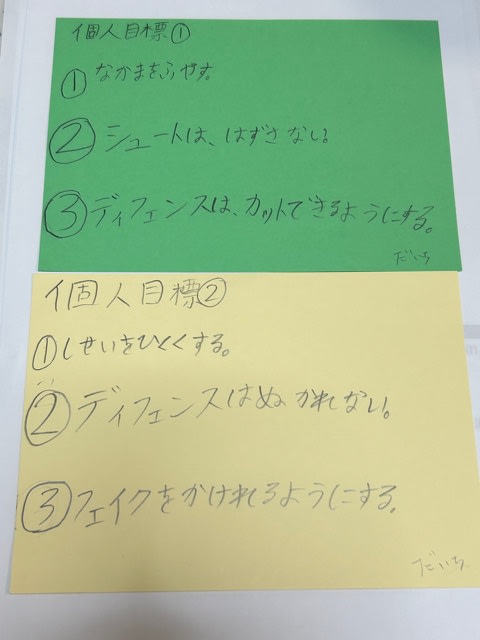 個人目標①
①なかまをふやす。
②シュートは、はずさない。
③ディフェンスは、カットできるようにする。
だいち
個人目標②
①しせいをひくくする。
②ディフェンスはぬかれない。
③フェイクをかけれるようにする。
だいち